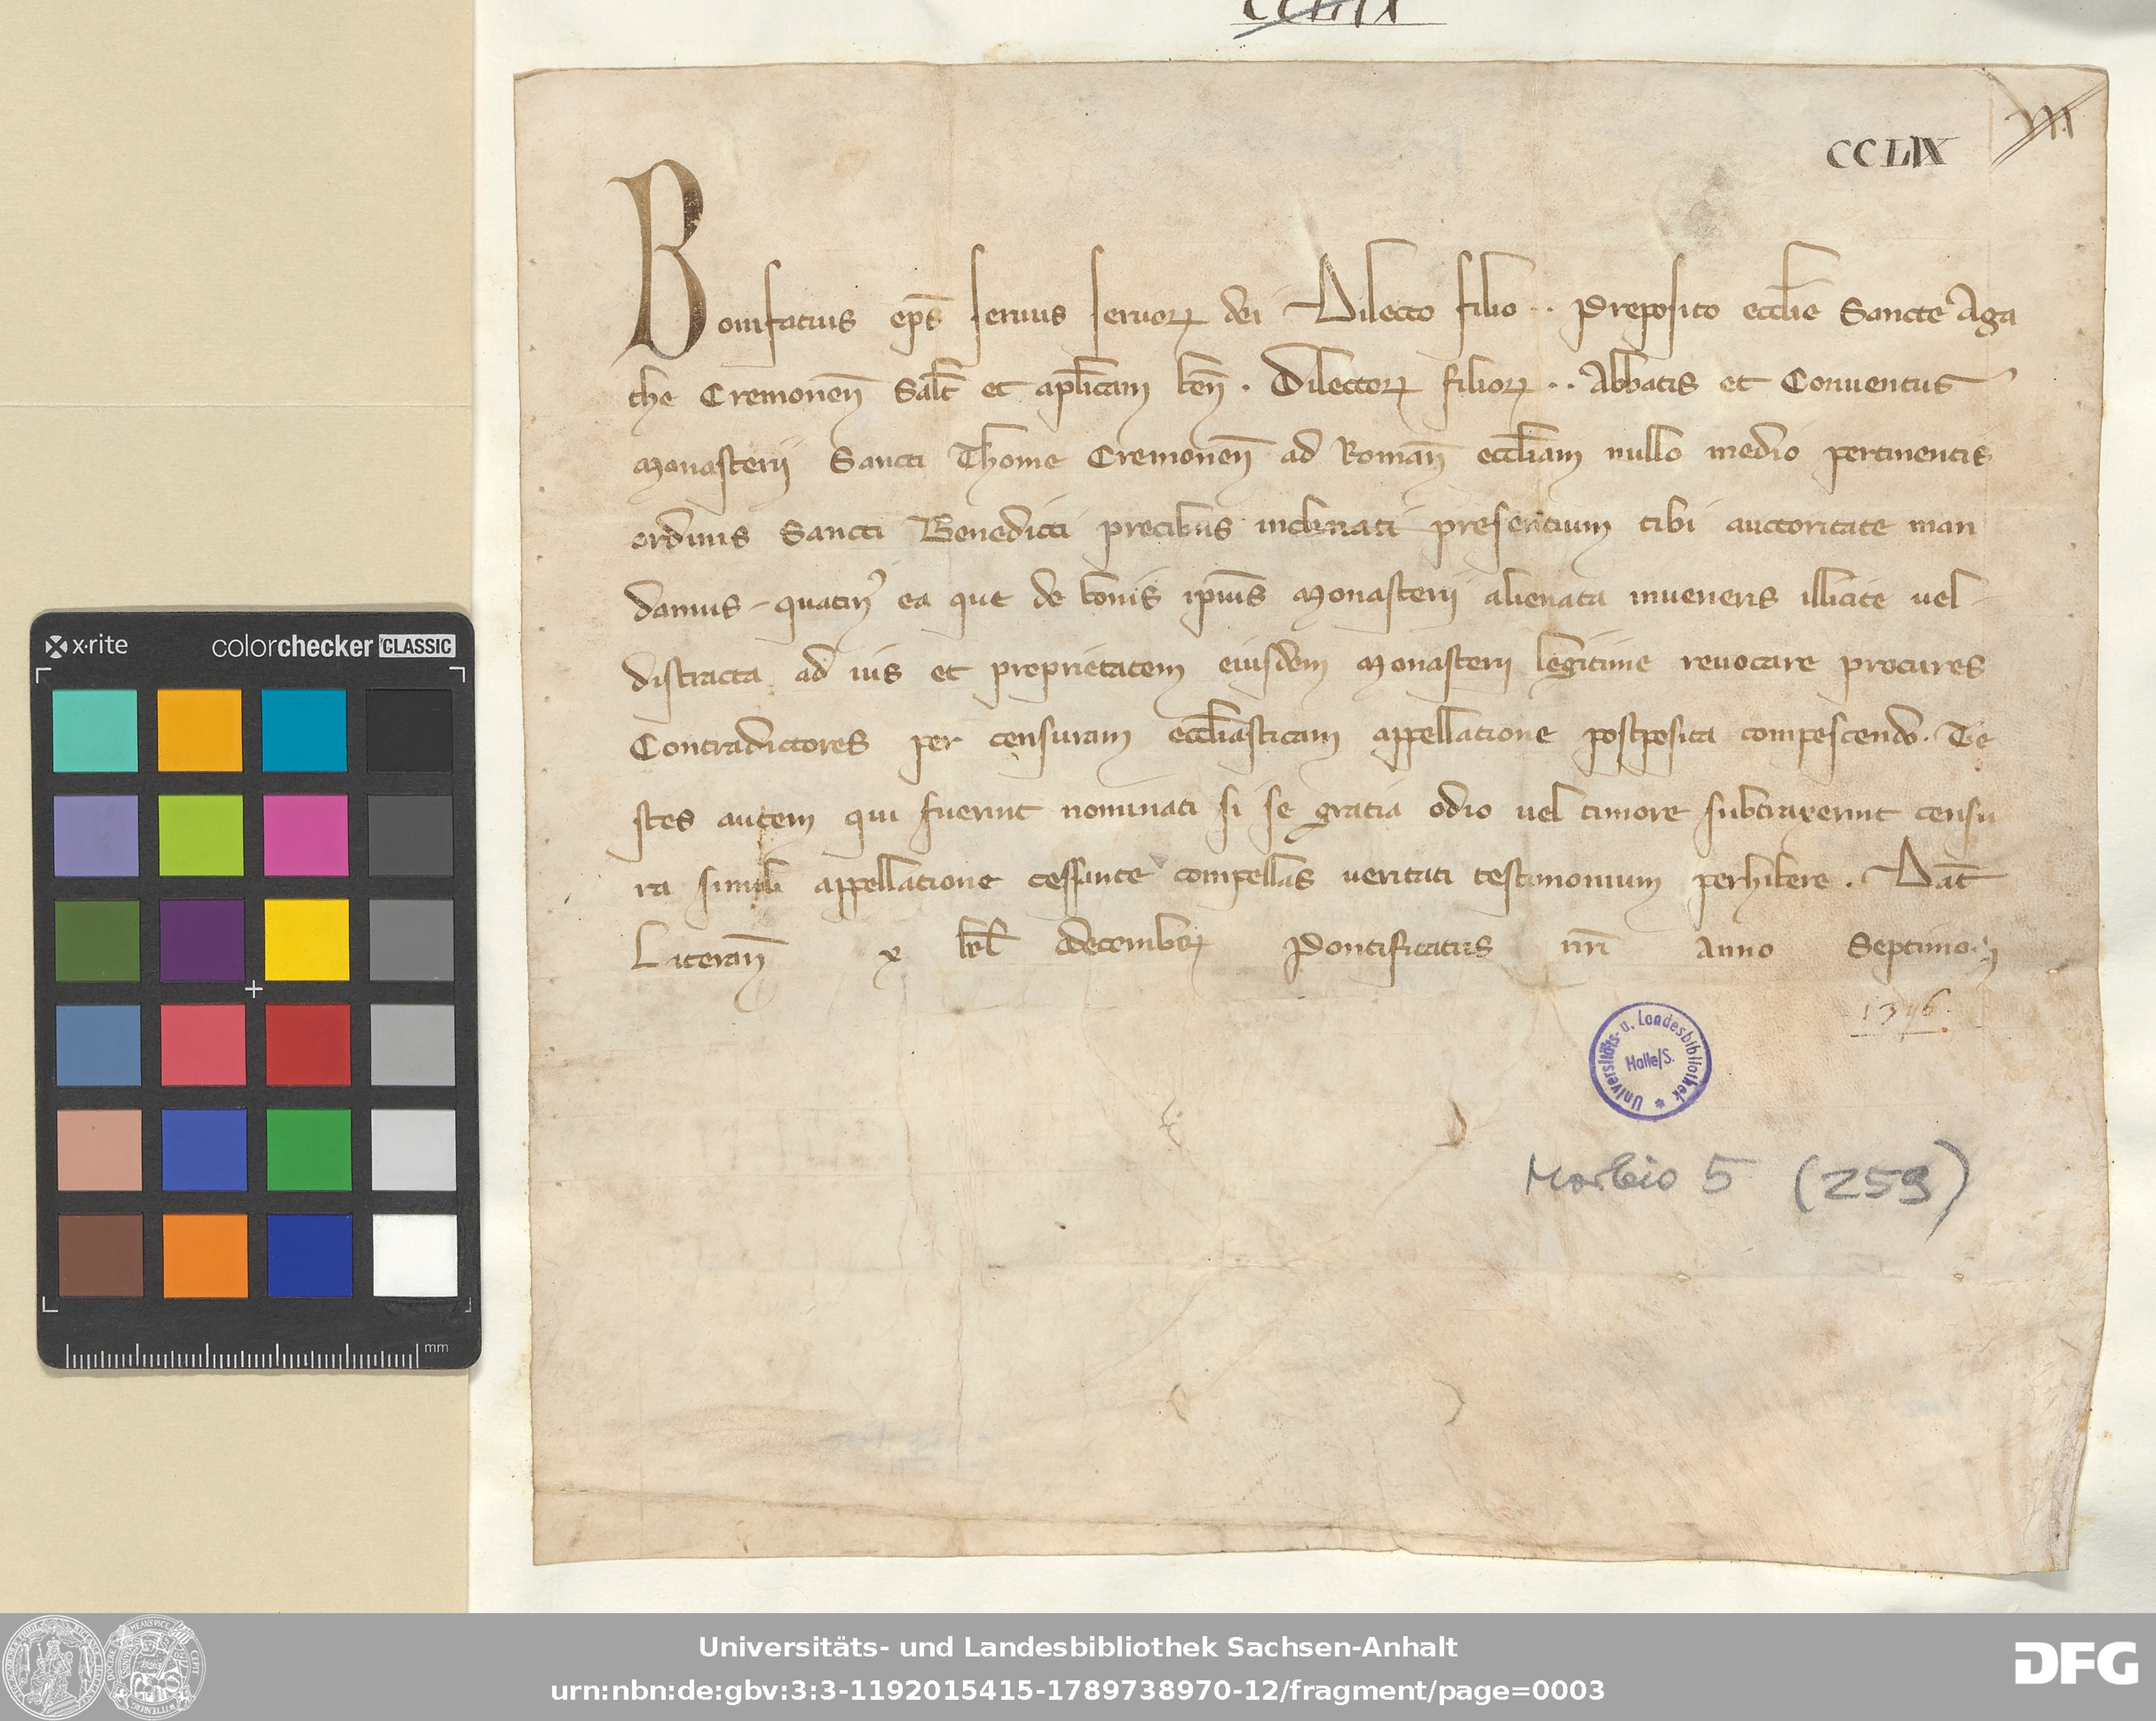 CCLIX
CCLIX
Bonifatius ep̄s seruus seruoꝝ dei Dilecto filio ·· Preposito eccl̄ie Sancte Aga
the Cremonen̄ Sal̄t et ap̄licam ben̄ . Dilectoꝝ filioꝝ ·· Abbatis et Conuentus
Monasterij Sancti Thome Cremonen̄ ad Roman̄ eccl̄iam nullo medio pertinentis
ordinis Sancti Benedicti precibus inclinati presentium tibi auctoritate man
damus - quatin᷒ ea que de bonis ip̄ius Monasterij alienata inueneris illicite uel
distracta ad ius et proprietatem eiusdem Monasterij legitime reuocare procures
Contradictores per censuram eccl̄iasticam appellatione postposita compescendo . Te
stes autem qui fuerint nominati si se gratia odio uel timore subtraxerint censu
ra simili appellatione cessante compellas ueritati testimonium perhibere . Dat̄
Lateran̄ x kl̄ decembꝝ Pontificatus nr̄i Anno Septimo.
Universitäts- u. Landesbibliothek
Halle/S.
Morbio 5 (259)
x·rite colorchecker CLASSIC
mm
Universitäts- und Landesbibliothek Sachsen-Anhalt
urn:nbn:de:gbv:3:3-1192015415-1789738970-12/fragment/page=0003
DFG